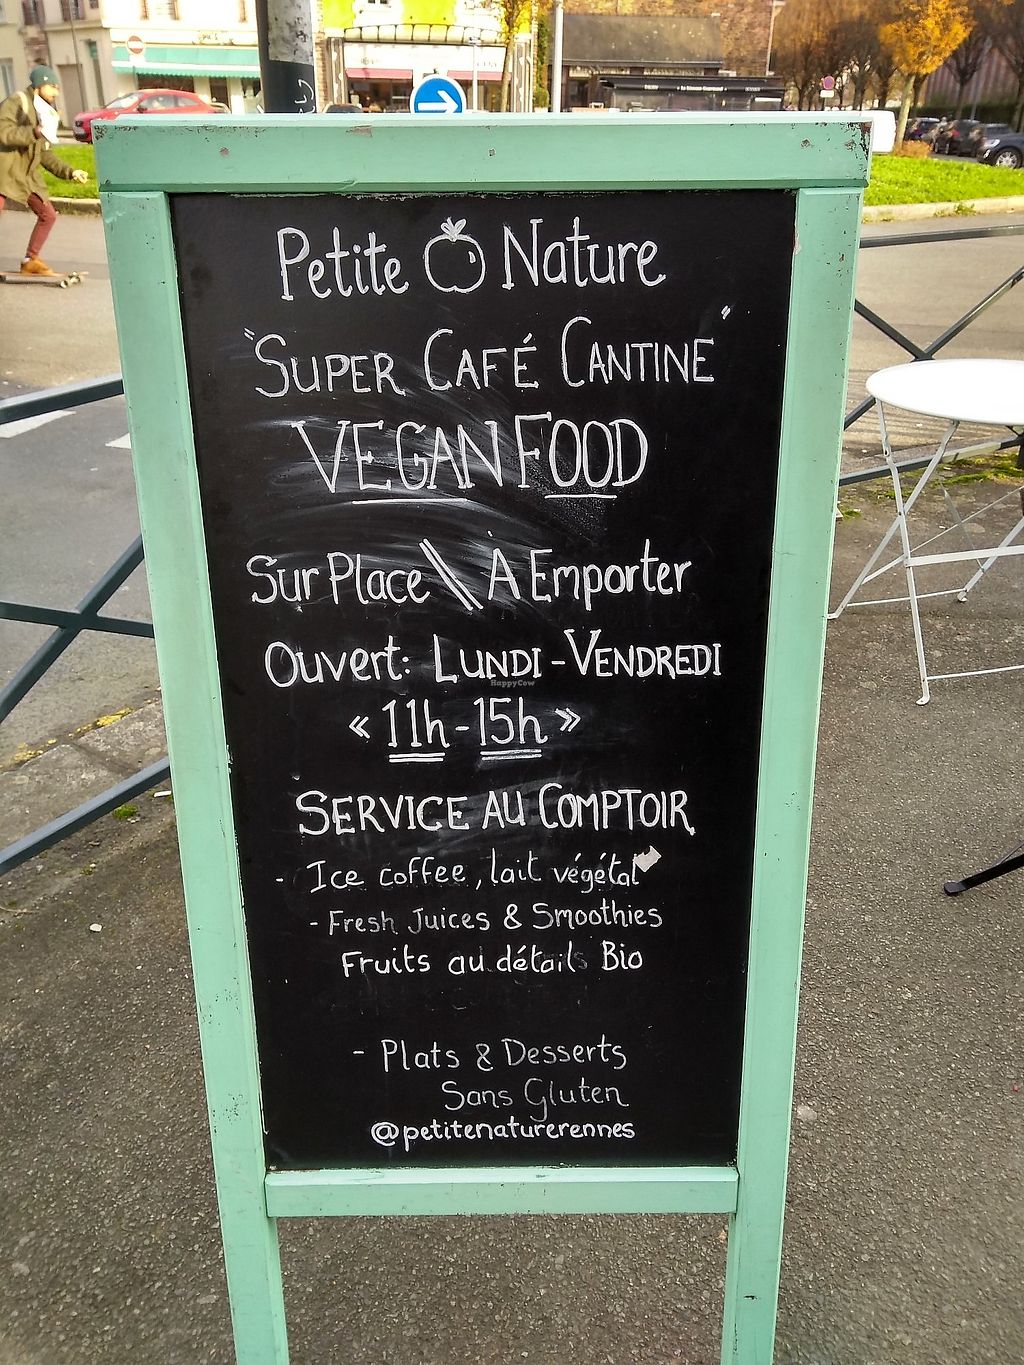 Petite Nature
"Super Café Cantine"
VEGAN FOOD
Sur Place \\ À Emporter
Ouvert: Lundi - Vendredi
« 11h - 15h »
Service au Comptoir
- Ice coffee, lait végétal
- Fresh Juices & Smoothies
Fruits au détails Bio
- Plats & Desserts
Sans Gluten
@petitenaturerennes
HappyCow